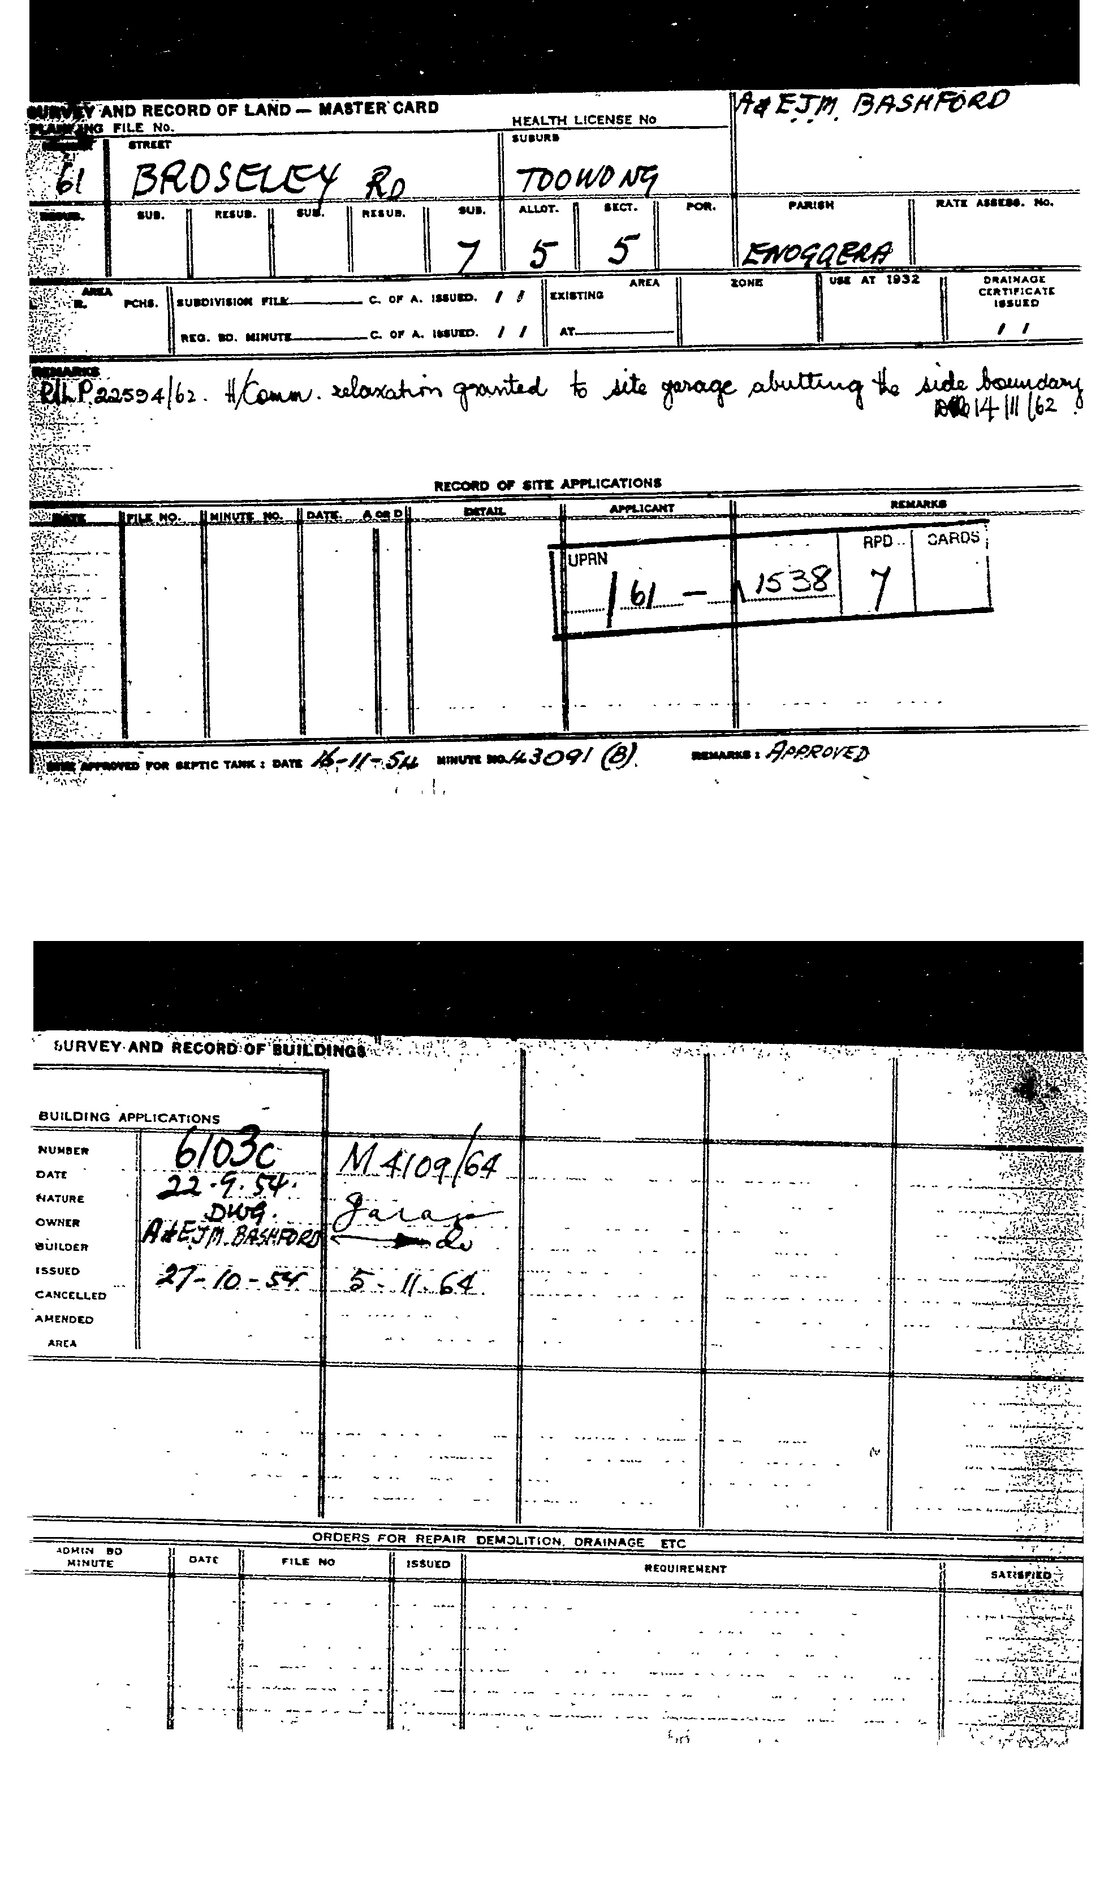 SURVEY AND RECORD OF LAND — MASTER CARD
PLANNING FILE No.
HEALTH LICENSE No
A & E.J.M. BASHFORD
STREET
SUBURB
61 BROSELEY RD TOOWONG
RESUB. SUB. RESUB. SUB. RESUB. SUB. ALLOT. SECT. POR. PARISH RATE ASSESS. No.
7 5 5 ENOGGERA
AREA
R. PCHS. SUBDIVISION FILE C. OF A. ISSUED. / / EXISTING AREA ZONE USE AT 1932 DRAINAGE CERTIFICATE ISSUED
REG. BD. MINUTE C. OF A. ISSUED. / / AT / /
REMARKS
22594/62. H/Comm. relaxation granted to site garage abutting the side boundary
14/11/62
RECORD OF SITE APPLICATIONS
DATE FILE NO. MINUTE NO. DATE. A OR D DETAIL APPLICANT REMARKS
UPRN RPD CARDS
/ 61 — 1538 7
SITE APPROVED FOR SEPTIC TANK : DATE 16-11-54 MINUTE NO. 43091 (B). REMARKS : APPROVED
SURVEY AND RECORD OF BUILDINGS
BUILDING APPLICATIONS
NUMBER 6103C M 4109/64
DATE 22.9.54.
NATURE DWG. garage
OWNER A & E.J.M. BASHFORD do
BUILDER
ISSUED 27-10-54 5-11-64
CANCELLED
AMENDED
AREA
ORDERS FOR REPAIR DEMOLITION, DRAINAGE ETC
ADMIN BD MINUTE DATE FILE NO ISSUED REQUIREMENT SATISFIED